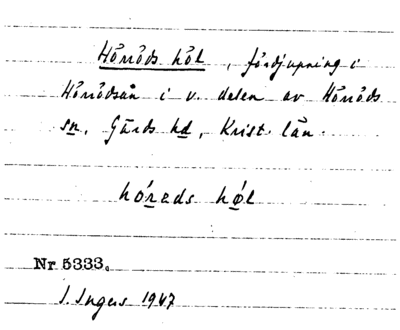 Hörröds höl, fördjupning i
Hörrödsån i v. delen av Hörröds
sn, Gärds hd, Krist. län.
hö́rads hø̀l
Nr 5333.
I. Ingers 1947